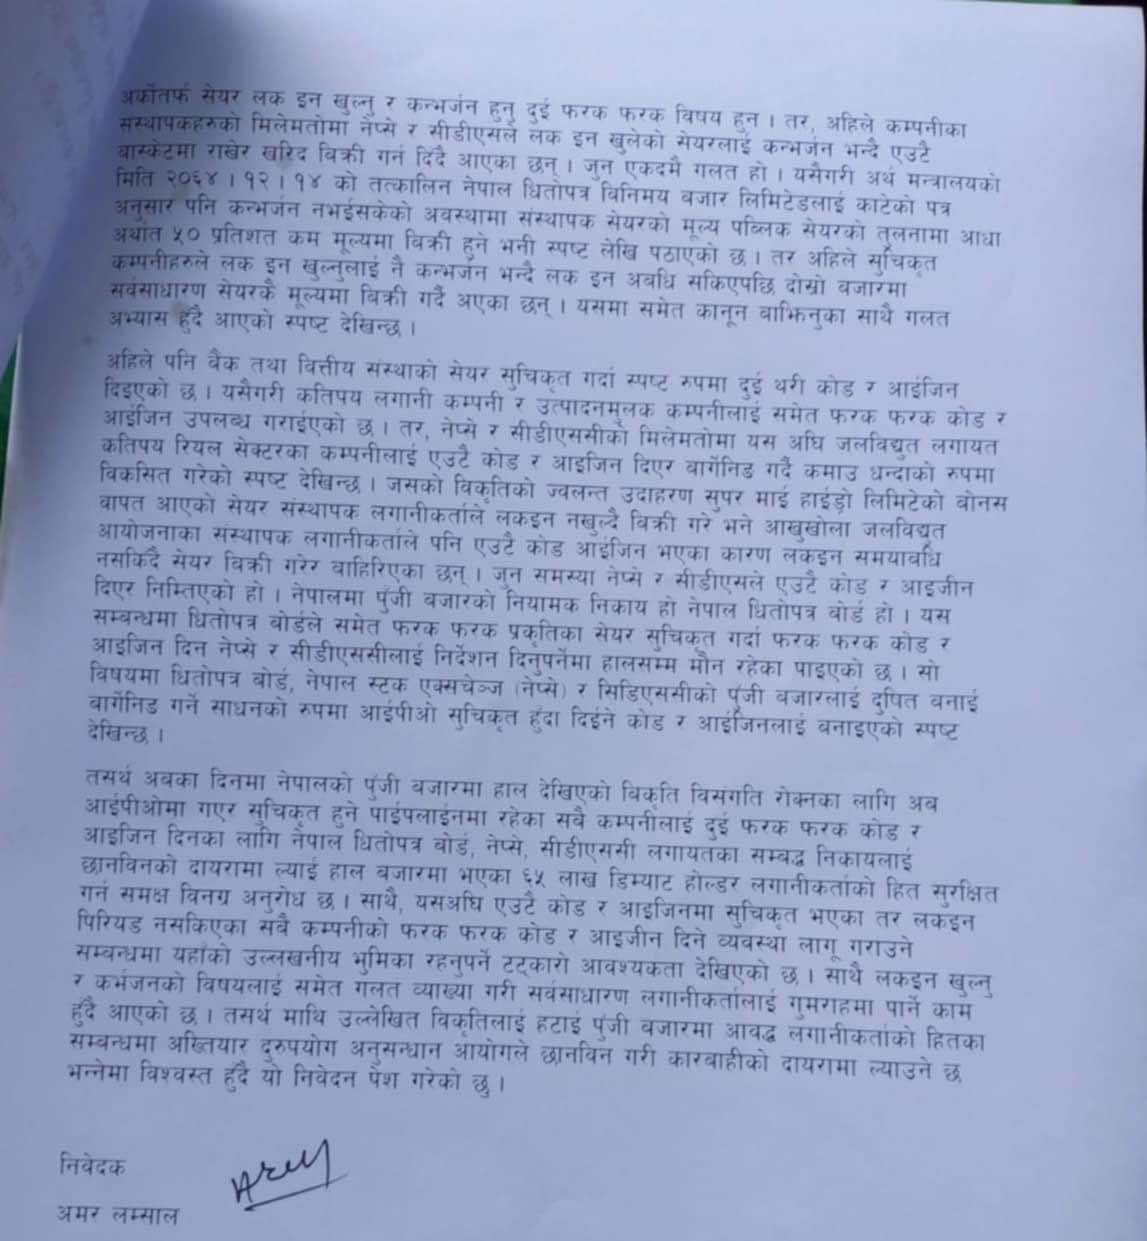 अर्कोतर्फ सेयर लक इन खुल्नु र कन्भर्जन हुनु दुई फरक फरक विषय हुन । तर, अहिले कम्पनीका
संस्थापकहरुको मिलेमतोमा नेप्से र सीडीएसले लक इन खुलेको सेयरलाई कन्भर्जन भन्दै एउटै
बास्केटमा राखेर खरिद बिक्री गर्न दिँदै आएका छन् । जुन एकदमै गलत हो । यसैगरी अर्थ मन्त्रालयको
मिति २०६४ । १२ । १४ को तत्कालिन नेपाल धितोपत्र विनिमय बजार लिमिटेडलाई काटेको पत्र
अनुसार पनि कन्भर्जन नभईसकेको अवस्थामा संस्थापक सेयरको मूल्य पब्लिक सेयरको तुलनामा आधा
अर्थात ५० प्रतिशत कम मूल्यमा बिक्री हुने भनी स्पष्ट लेखि पठाएको छ । तर अहिले सुचिकृत
कम्पनीहरुले लक इन खुल्नुलाई नै कन्भर्जन भन्दै लक इन अवधि सकिएपछि दोस्रो बजारमा
सर्वसाधारण सेयरकै मूल्यमा बिक्री गर्दै अएका छन् । यसमा समेत कानून बाझिनुका साथै गलत
अभ्यास हुँदै आएको स्पष्ट देखिन्छ ।
अहिले पनि बैंक तथा वित्तीय संस्थाको सेयर सुचिकृत गर्दा स्पष्ट रुपमा दुई थरी कोड र आईजिन
दिइएको छ । यसैगरी कतिपय लगानी कम्पनी र उत्पादनमूलक कम्पनीलाई समेत फरक फरक कोड र
आईजिन उपलब्ध गराईएको छ । तर, नेप्से र सीडीएससीको मिलेमतोमा यस अघि जलविद्युत लगायत
कतिपय रियल सेक्टरका कम्पनीलाई एउटै कोड र आइजिन दिएर बार्गेनिङ गर्दै कमाउ धन्दाको रुपमा
विकसित गरेको स्पष्ट देखिन्छ । जसको विकृतिको ज्वलन्त उदाहरण सुपर माई हाईड्रो लिमिटेको बोनस
वापत आएको सेयर संस्थापक लगानीकर्ताले लकइन नखुल्दै बिक्री गरे भने आखुखोला जलविद्युत
आयोजनाका संस्थापक लगानीकर्ताले पनि एउटै कोड आईजिन भएका कारण लकइन समयावधि
नसकिँदै सेयर बिक्री गरेर बाहिरिएका छन् । जुन समस्या नेप्से र सीडीएसले एउटै कोड र आइजीन
दिएर निम्तिएको हो । नेपालमा पुँजी बजारको नियामक निकाय हो नेपाल धितोपत्र बोर्ड हो । यस
सम्बन्धमा धितोपत्र बोर्डले समेत फरक फरक प्रकृतिका सेयर सुचिकृत गर्दा फरक फरक कोड र
आइजिन दिन नेप्से र सीडीएससीलाई निर्देशन दिनुपर्नेमा हालसम्म मौन रहेका पाइएको छ । सो
विषयमा धितोपत्र बोर्ड, नेपाल स्टक एक्सचेञ्ज (नेप्से) र सिडिएससीको पुँजी बजारलाई दुषित बनाई
बार्गेनिङ गर्ने साधनको रुपमा आईपीओ सुचिकृत हुँदा दिईने कोड र आईजिनलाई बनाइएको स्पष्ट
देखिन्छ ।
तसर्थ अबका दिनमा नेपालको पुँजी बजारमा हाल देखिएको विकृति विसंगति रोक्नका लागि अब
आईपीओमा गएर सुचिकृत हुने पाईपलाईनमा रहेका सबै कम्पनीलाई दुई फरक फरक कोड र
आइजिन दिनका लागि नेपाल धितोपत्र बोर्ड, नेप्से, सीडीएससी लगायतका सम्बद्ध निकायलाई
छानविनको दायरामा ल्याई हाल बजारमा भएका ६५ लाख डिम्याट होल्डर लगानीकर्ताको हित सुरक्षित
गर्न समक्ष विनम्र अनुरोध छ । साथै, यसअघि एउटै कोड र आइजिनमा सुचिकृत भएका तर लकइन
पिरियड नसकिएका सबै कम्पनीको फरक फरक कोड र आइजीन दिने व्यवस्था लागू गराउने
सम्बन्धमा यहाँको उल्लखनीय भुमिका रहनुपर्ने टट्कारो आवश्यकता देखिएको छ । साथै लकइन खुल्नु
र कर्भजनको विषयलाई समेत गलत व्याख्या गरी सर्वसाधारण लगानीकर्तालाई गुमराहमा पार्ने काम
हुँदै आएको छ । तसर्थ माथि उल्लेखित विकृतिलाई हटाई पुँजी बजारमा आवद्ध लगानीकर्ताको हितका
सम्बन्धमा अख्तियार दुरुपयोग अनुसन्धान आयोगले छानविन गरी कारबाहीको दायरामा ल्याउने छ
भन्नेमा विश्वस्त हुँदै यो निवेदन पेश गरेको छु ।
निवेदक
अमर लम्साल